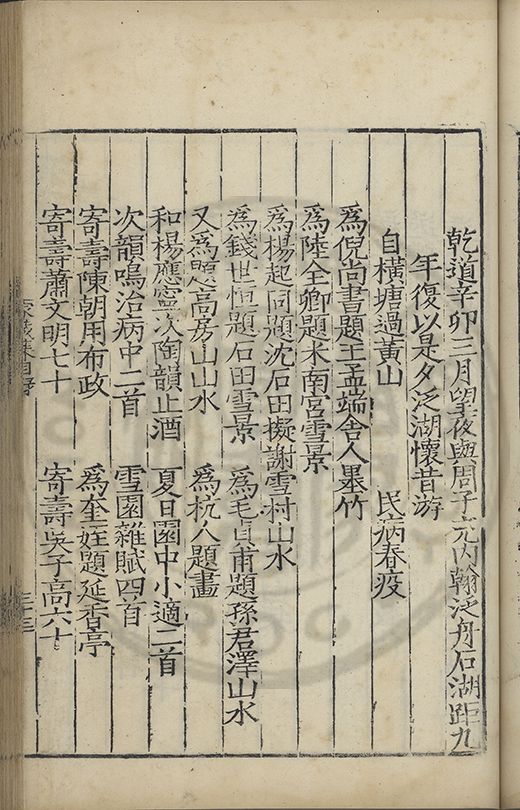 乾道辛卯三月望夜與周子充內翰泛舟石湖距九
年復以是夕泛湖懷昔游
自橫塘過黃山 民病春疫
為倪尚書題王孟端舍人墨竹
為陸全卿題米南宮雪景
為楊起同題沈石田擬謝雪村山水
為錢世恒題石田雪景 為毛貞甫題孫君澤山水
又為題高房山山水 為杭人題畫
和楊應寧次陶韻止酒 夏日園中小適二首
次韻鳴治病中二首 雪園雜賦四首
寄壽陳朝用布政 為奎姪題延香亭
寄壽蕭文明七十 寄壽吳子高六十